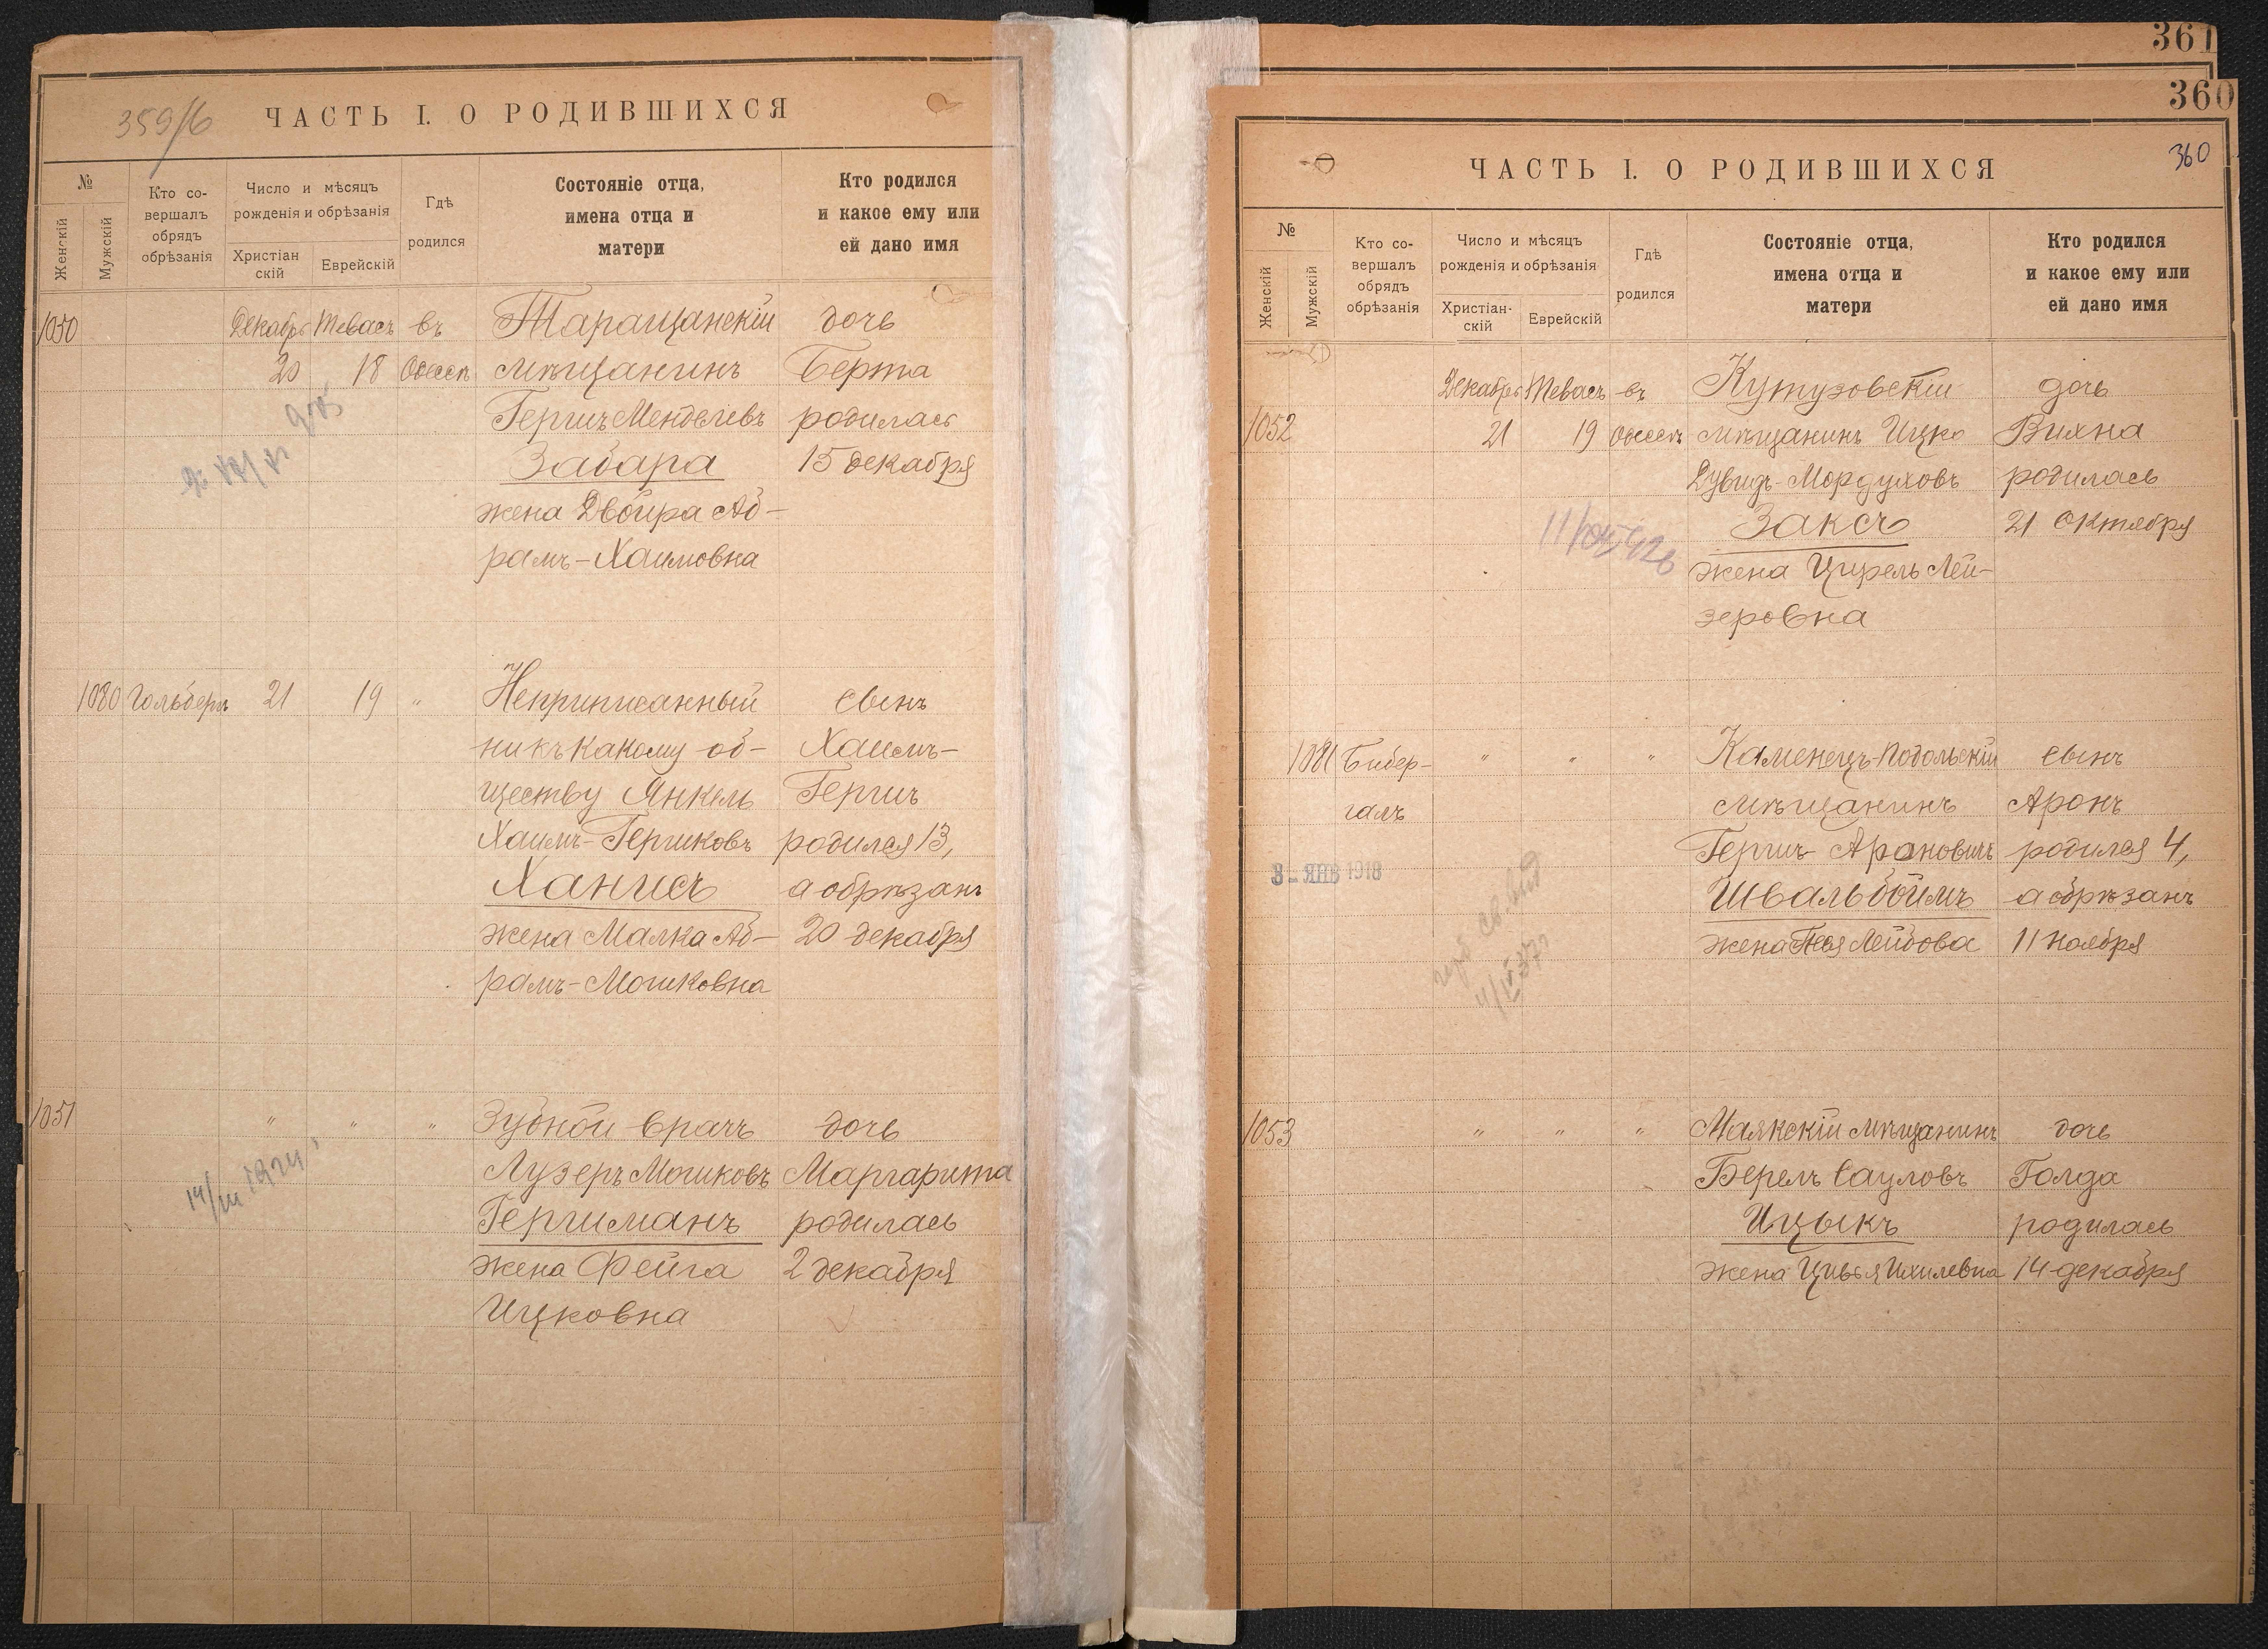 361
359/б
ЧАСТЬ I. О РОДИВШИХСЯ
№
Женскій
Мужскій
Кто со-
вершалъ
обрядъ
обрѣзанія
Число и мѣсяцъ
рожденія и обрѣзанія
Христіан
скій
Еврейскій
Гдѣ
родился
Состояніе отца,
имена отца и
матери
Кто родился
и какое ему или
ей дано имя
1050 Декабрь Тевасъ въ Таращанскій дочь
20 18 Одессѣ мѣщанинъ Берта
Гершъ Менделевъ родилась
Забара 15 декабря
жена Двойра Аб-
рамъ-Хаимовна
1080 Гольберъ 21 19 " Неприписанный сынъ
ни къ какому об- Хаимъ-
ществу Янкель Гершъ
Хаимъ-Гершковъ родился 13,
Ханисъ а обрѣзанъ
жена Малка Аб- 20 декабря
рамъ-Мошковна
1051 " " " Зубной врачъ дочь
Лузеръ Мошковъ Маргарита
14/III Гершманъ родилась
жена Фейга 2 декабря
Ицковна
360
360
ЧАСТЬ I. О РОДИВШИХСЯ
№
Женскій
Мужскій
Кто со-
вершалъ
обрядъ
обрѣзанія
Число и мѣсяцъ
рожденія и обрѣзанія
Христіан-
скій
Еврейскій
Гдѣ
родился
Состояніе отца,
имена отца и
матери
Кто родился
и какое ему или
ей дано имя
Декабрь Тевасъ въ Кутузовскій дочь
1052 21 19 Одессѣ мѣщанинъ Ицко Вихна
Дувидъ-Мордуховъ родилась
Заксъ 21 Октября
жена Цирель Лей-
зеровна
1081 Бибер- " " " Каменецъ-Подольскій сынъ
галъ мѣщанинъ Аронъ
Гершъ Ароновичъ родился 4,
8 - ЯНВ 1918 Швальбоймъ а обрѣзанъ
жена Лейбова 11 ноября
1053 " " " Маякскій мѣщанинъ дочь
Берель Сауловъ Голда
Ицыкъ родилась
жена Цивья Ихилевна 14 декабря